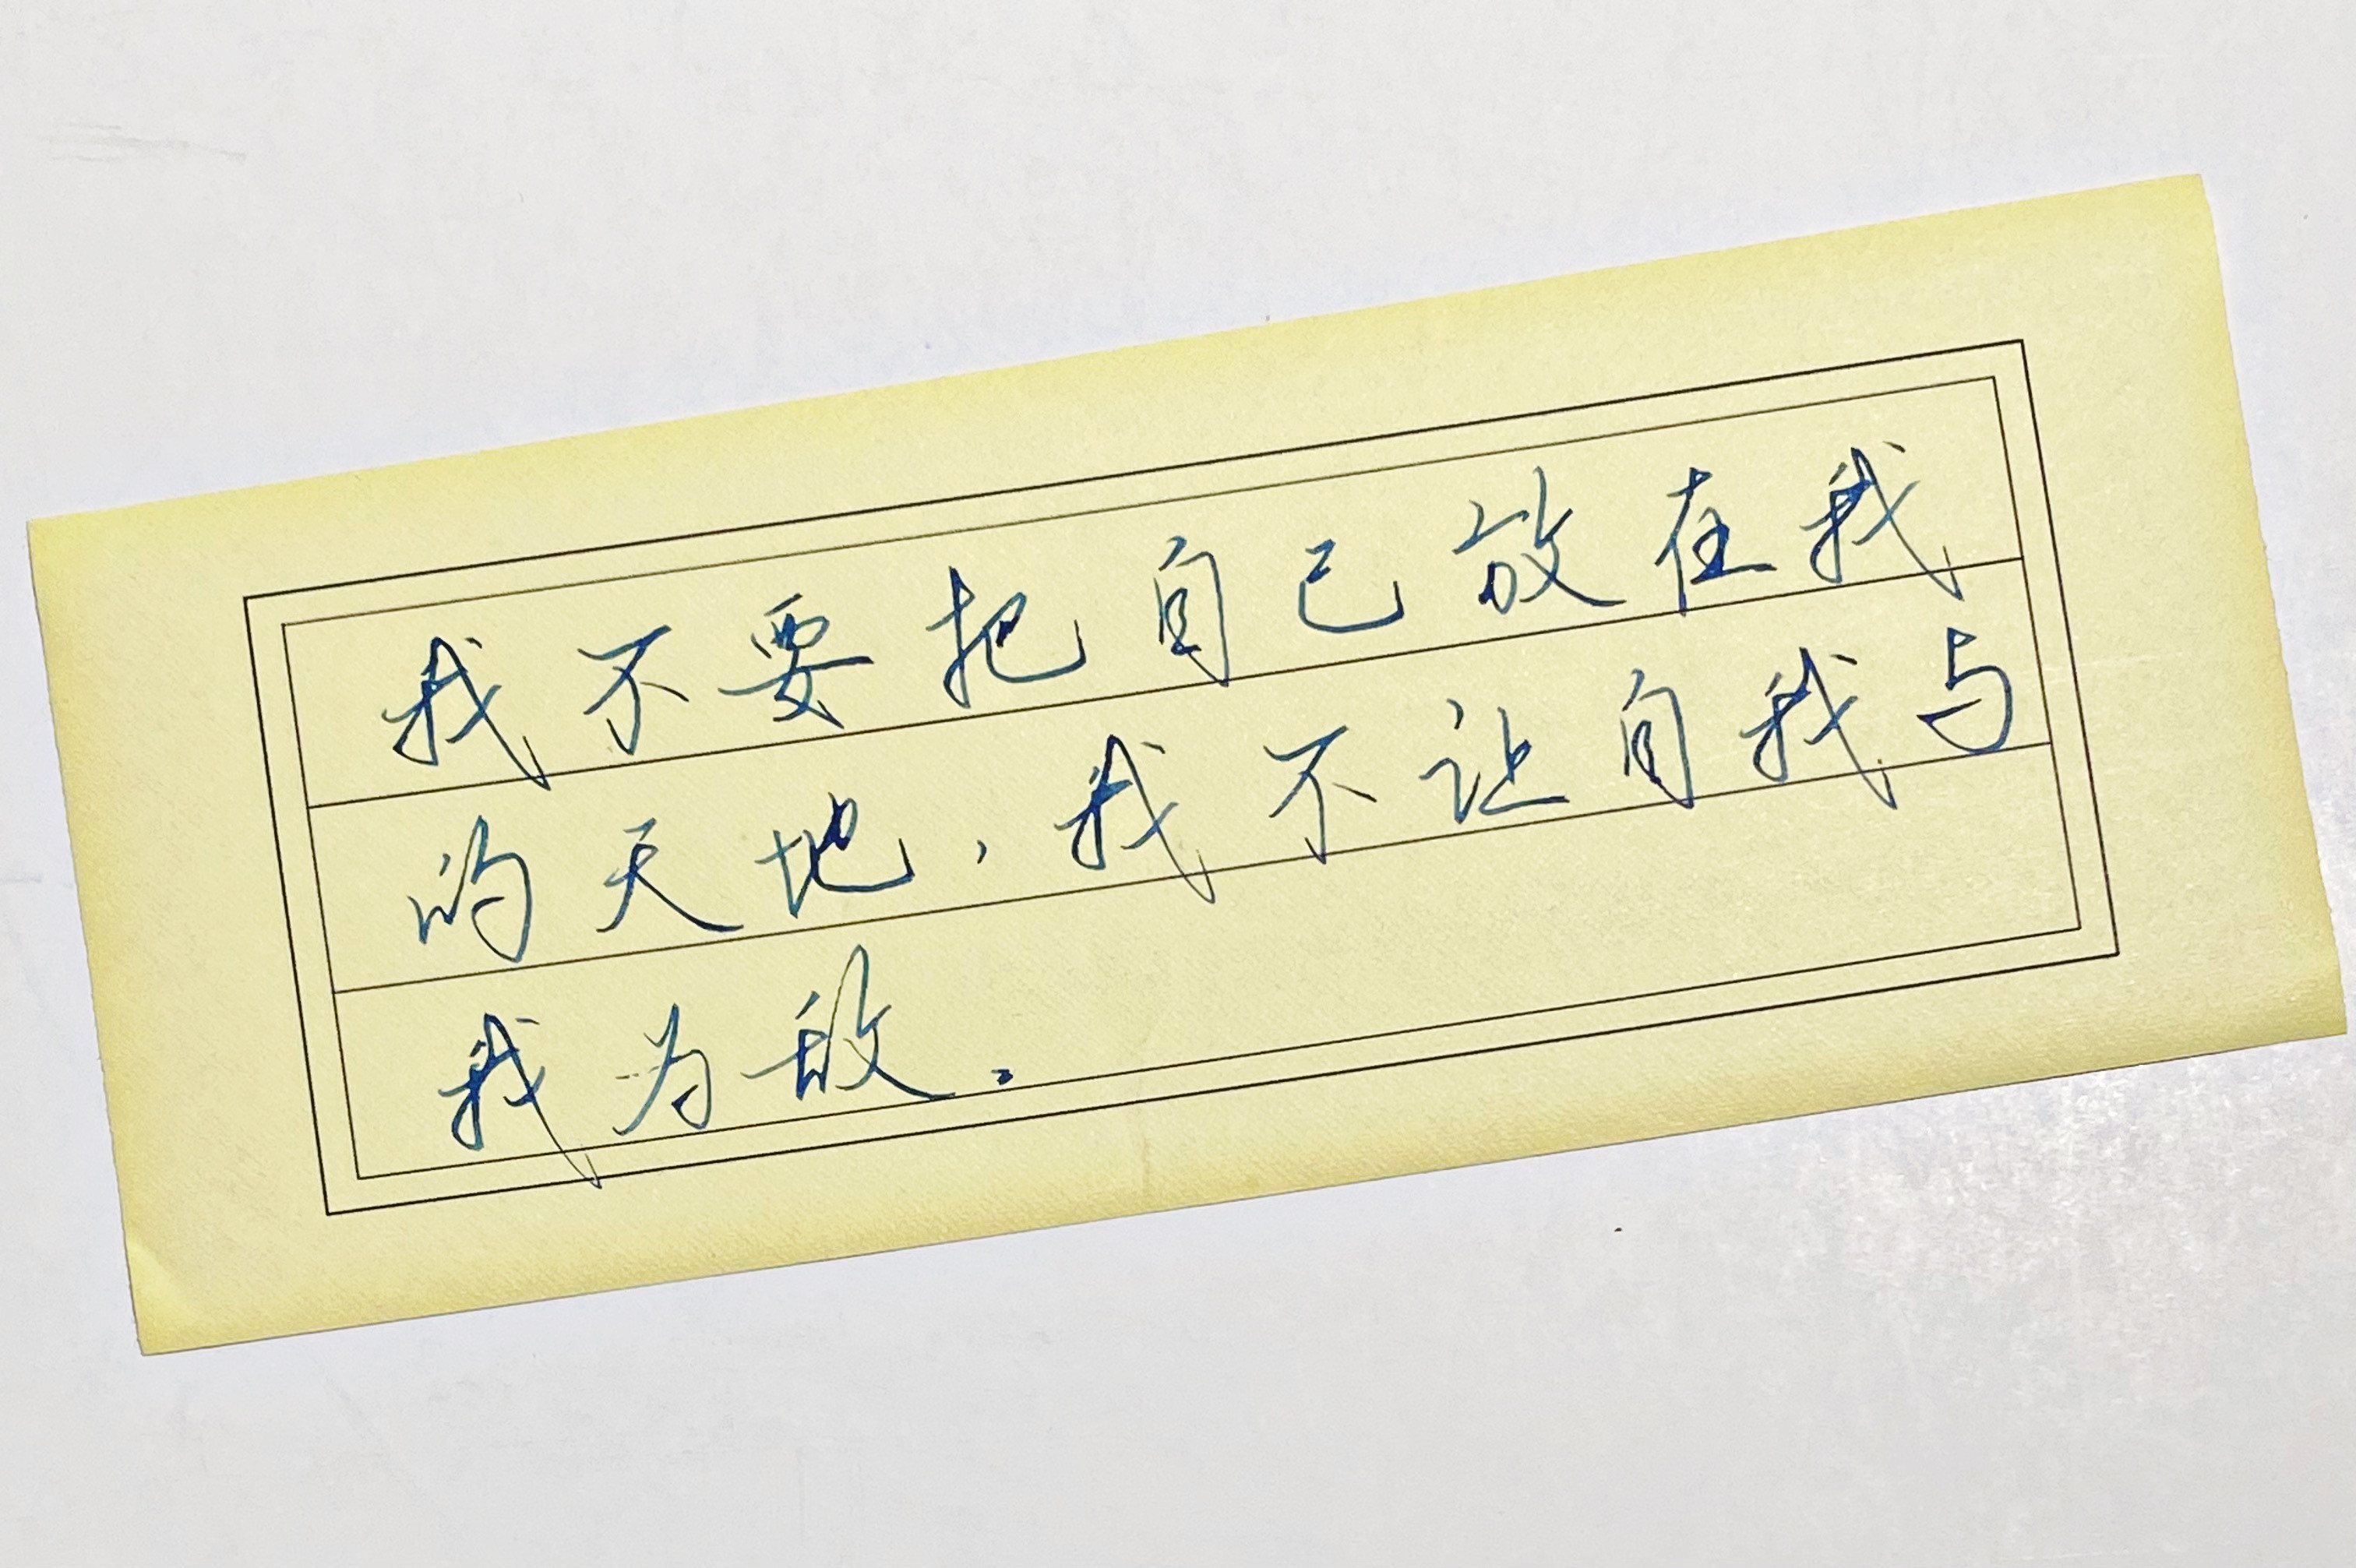 我不要把自己放在我
的天地，我不让自我与
我为敌．